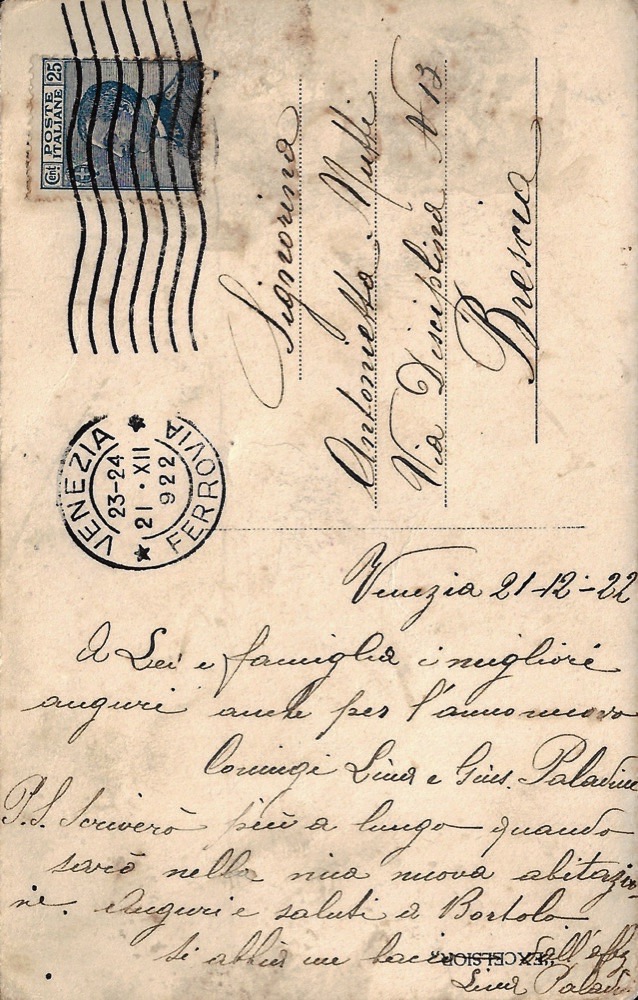 POSTE ITALIANE
Cent. 25
VENEZIA
23-24
21 · XII
922
FERROVIA
Signorina
Antonietta Muffi
Via Disciplina N 13
Brescia
Venezia 21-12-22
A Lei e famiglia i migliori
auguri anche per l'anno nuovo
Lina e Gius. Paladini
P.S. Scriverò più a lungo quando
sarò nella mia nuova abitazio-
ne. Auguri e saluti a Bortolo
si abbia un bacio dall'aff
Lina Paladi
EXCELSIOR